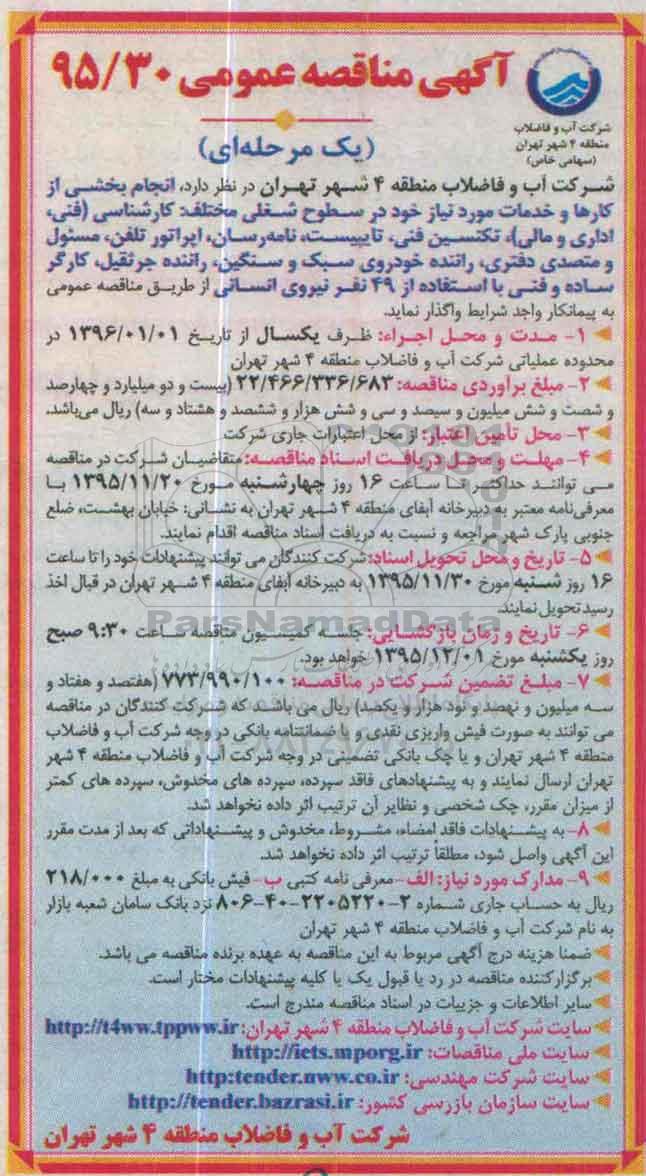 آگهی مناقصه عمومی ۹۵/۳۰
شرکت آب و فاضلاب
منطقه ۴ شهر تهران
(سهامی خاص)
(یک مرحله‌ای)
شرکت آب و فاضلاب منطقه ۴ شهر تهران در نظر دارد، انجام بخشی از
کارها و خدمات مورد نیاز خود در سطوح شغلی مختلف: کارشناسی (فنی،
اداری و مالی)، تکنسین فنی، تایپیست، نامه‌رسان، اپراتور تلفن، مسئول
و متصدی دفتری، راننده خودروی سبک و سنگین، راننده جرثقیل، کارگر
ساده و فنی با استفاده از ۴۹ نفر نیروی انسانی از طریق مناقصه عمومی
به پیمانکار واجد شرایط واگذار نماید.
۱- مدت و محل اجراء: ظرف یکسال از تاریخ ۱۳۹۶/۰۱/۰۱ در
محدوده عملیاتی شرکت آب و فاضلاب منطقه ۴ شهر تهران
۲- مبلغ برآوردی مناقصه: ۲۲/۴۶۶/۳۳۶/۶۸۳ (بیست و دو میلیارد و چهارصد
و شصت و شش میلیون و سیصد و سی و شش هزار و ششصد و هشتاد و سه) ریال می‌باشد.
۳- محل تأمین اعتبار: از محل اعتبارات جاری شرکت
۴- مهلت و محل دریافت اسناد مناقصه: متقاضیان شرکت در مناقصه
می توانند حداکثر تا ساعت ۱۶ روز چهارشنبه مورخ ۱۳۹۵/۱۱/۲۰ با
معرفی‌نامه معتبر به دبیرخانه آبفای منطقه ۴ شهر تهران به نشانی: خیابان بهشت، ضلع
جنوبی پارک شهر مراجعه و نسبت به دریافت اسناد مناقصه اقدام نمایند.
۵- تاریخ و محل تحویل اسناد: شرکت کنندگان می توانند پیشنهادات خود را تا ساعت
۱۶ روز شنبه مورخ ۱۳۹۵/۱۱/۳۰ به دبیرخانه آبفای منطقه ۴ شهر تهران در قبال اخذ
رسید تحویل نمایند.
ParsNamadData
۶- تاریخ و زمان بازگشایی: جلسه کمیسیون مناقصه ساعت ۹:۳۰ صبح
روز یکشنبه مورخ ۱۳۹۵/۱۲/۰۱ خواهد بود.
۷- مبلغ تضمین شرکت در مناقصه: ۷۷۳/۹۹۰/۱۰۰ (هفتصد و هفتاد و
سه میلیون و نهصد و نود هزار و یکصد) ریال می باشد که شرکت کنندگان در مناقصه
می توانند به صورت فیش واریزی نقدی و یا ضمانتنامه بانکی در وجه شرکت آب و فاضلاب
منطقه ۴ شهر تهران و یا چک بانکی تضمینی در وجه شرکت آب و فاضلاب منطقه ۴ شهر
تهران ارسال نمایند و به پیشنهادهای فاقد سپرده، سپرده های مخدوش، سپرده های کمتر
از میزان مقرر، چک شخصی و نظایر آن ترتیب اثر داده نخواهد شد.
۸- به پیشنهادات فاقد امضاء، مشروط، مخدوش و پیشنهاداتی که بعد از مدت مقرر
این آگهی واصل شود، مطلقاً ترتیب اثر داده نخواهد شد.
۹- مدارک مورد نیاز: الف- معرفی نامه کتبی ب- فیش بانکی به مبلغ ۲۱۸/۰۰۰
ریال به حساب جاری شماره ۲-۲۲۰۵۲۲۰-۴۰-۸۰۶ نزد بانک سامان شعبه بازار
به نام شرکت آب و فاضلاب منطقه ۴ شهر تهران
ضمنا هزینه درج آگهی مربوط به این مناقصه به عهده برنده مناقصه می باشد.
برگزارکننده مناقصه در رد یا قبول یک یا کلیه پیشنهادات مختار است.
سایر اطلاعات و جزییات در اسناد مناقصه مندرج است.
سایت شرکت آب و فاضلاب منطقه ۴ شهر تهران: http://t4ww.tppww.ir
سایت ملی مناقصات: http://iets.mporg.ir
سایت شرکت مهندسی: http:tender.nww.co.ir
سایت سازمان بازرسی کشور: http://tender.bazrasi.ir
شرکت آب و فاضلاب منطقه ۴ شهر تهران